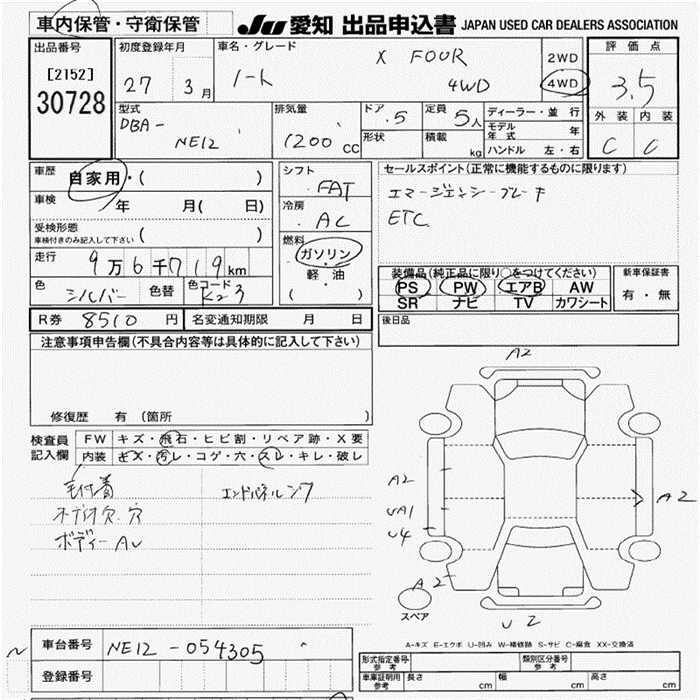 車内保管・守衛保管 JU 愛知 出品申込書 JAPAN USED CAR DEALERS ASSOCIATION
出品番号 初度登録年月 車名・グレード 評価点
[2152] 27 3月 ノート X FOUR 2WD 3.5
30728 4WD 4WD
型式 排気量 ドア 5 定員 5人 ディーラー・並行 外装 内装
DBA- モデル年式 年
NE12 1200cc 形状 積載 kg ハンドル 左・右 C C
車歴 自家用・( ) シフト FAT セールスポイント(正常に機能するものに限ります)
車検 年 月( 日) 冷房 AC エマージェンシーブレーキ
受検形態 ( ) ETC
車検付きのみ記入して下さい
燃料 ガソリン・軽油 ( )
走行 9万6千719km 装備品(純正品に限り○をつけてください) 新車保証書
色 シルバー 色替 色コード K23 PS PW エアB AW 有・無
SR ナビ TV カワシート
R券 8510円 名変通知期限 月 日 後日品
注意事項申告欄(不具合内容等は具体的に記入して下さい)
修復歴 有(箇所 )
検査員 FW キズ・飛石・ヒビ割・リペア跡・X要
記入欄 内装 キズ・汚レ・コゲ・穴・スレ・キレ・破レ
毛付着 エンドパネルシワ
ボディーAU
A2
A2
UA1
U4
A2
A2
U2
スペア
A-キズ E-エクボ U-凹み W-補修跡 S-サビ C-腐食 XX-交換済
車台番号 NE12-054305
登録番号
形式指定番号 参考 類別区分番号 参考
車庫証明用 参考 長さ cm 幅 cm 高さ cm